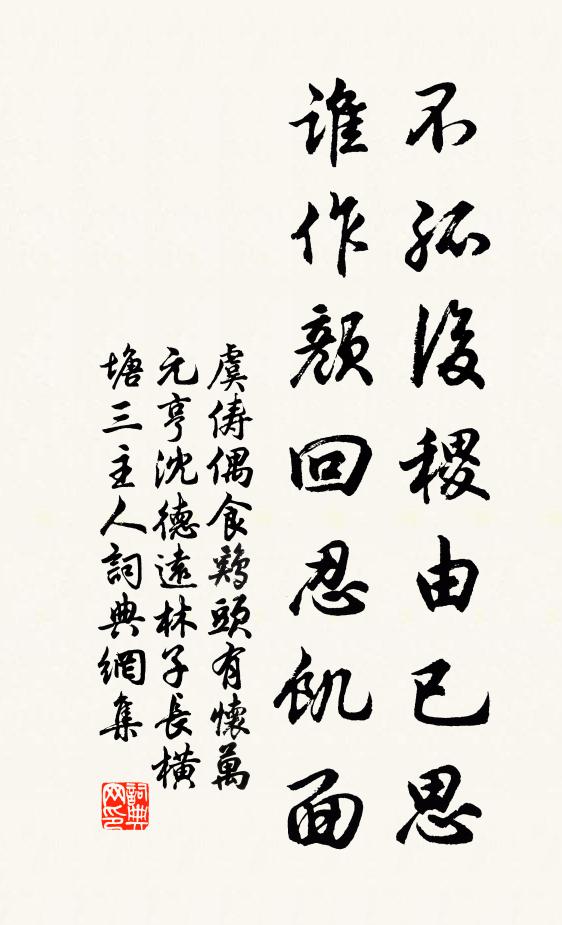 不孤後稷由已思
誰作顏回忍飢面
虞儔偶食鷄頭有懷萬
元亨沈德遠林子長橫
塘三主人詞典網集
詞典网印